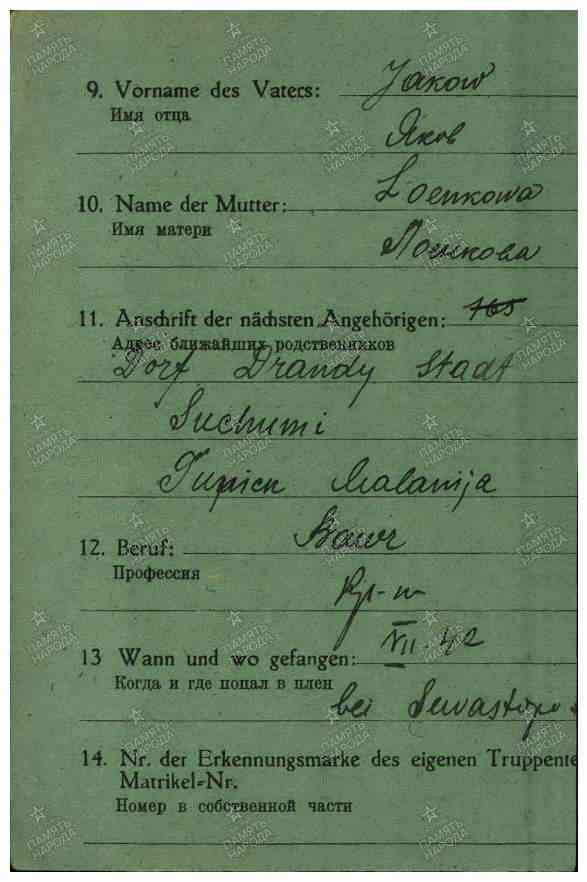 9. Vorname des Vaters: Jakow
Имя отца
Яков
10. Name der Mutter: Loenkowa
Имя матери
Лоенкова
11. Anschrift der nächsten Angehörigen: 165
Адрес ближайших родственников
Dorf Drandy Stadt
Suchumi
Malanija
12. Beruf: Bauer
Профессия
Кр-н
13 Wann und wo gefangen: VII. 42
Когда и где попал в плен
bei Sewastopo
14. Nr. der Erkennungsmarke des eigenen Truppente
Matrikel-Nr.
Номер в собственной части
ПАМЯТЬ НАРОДА